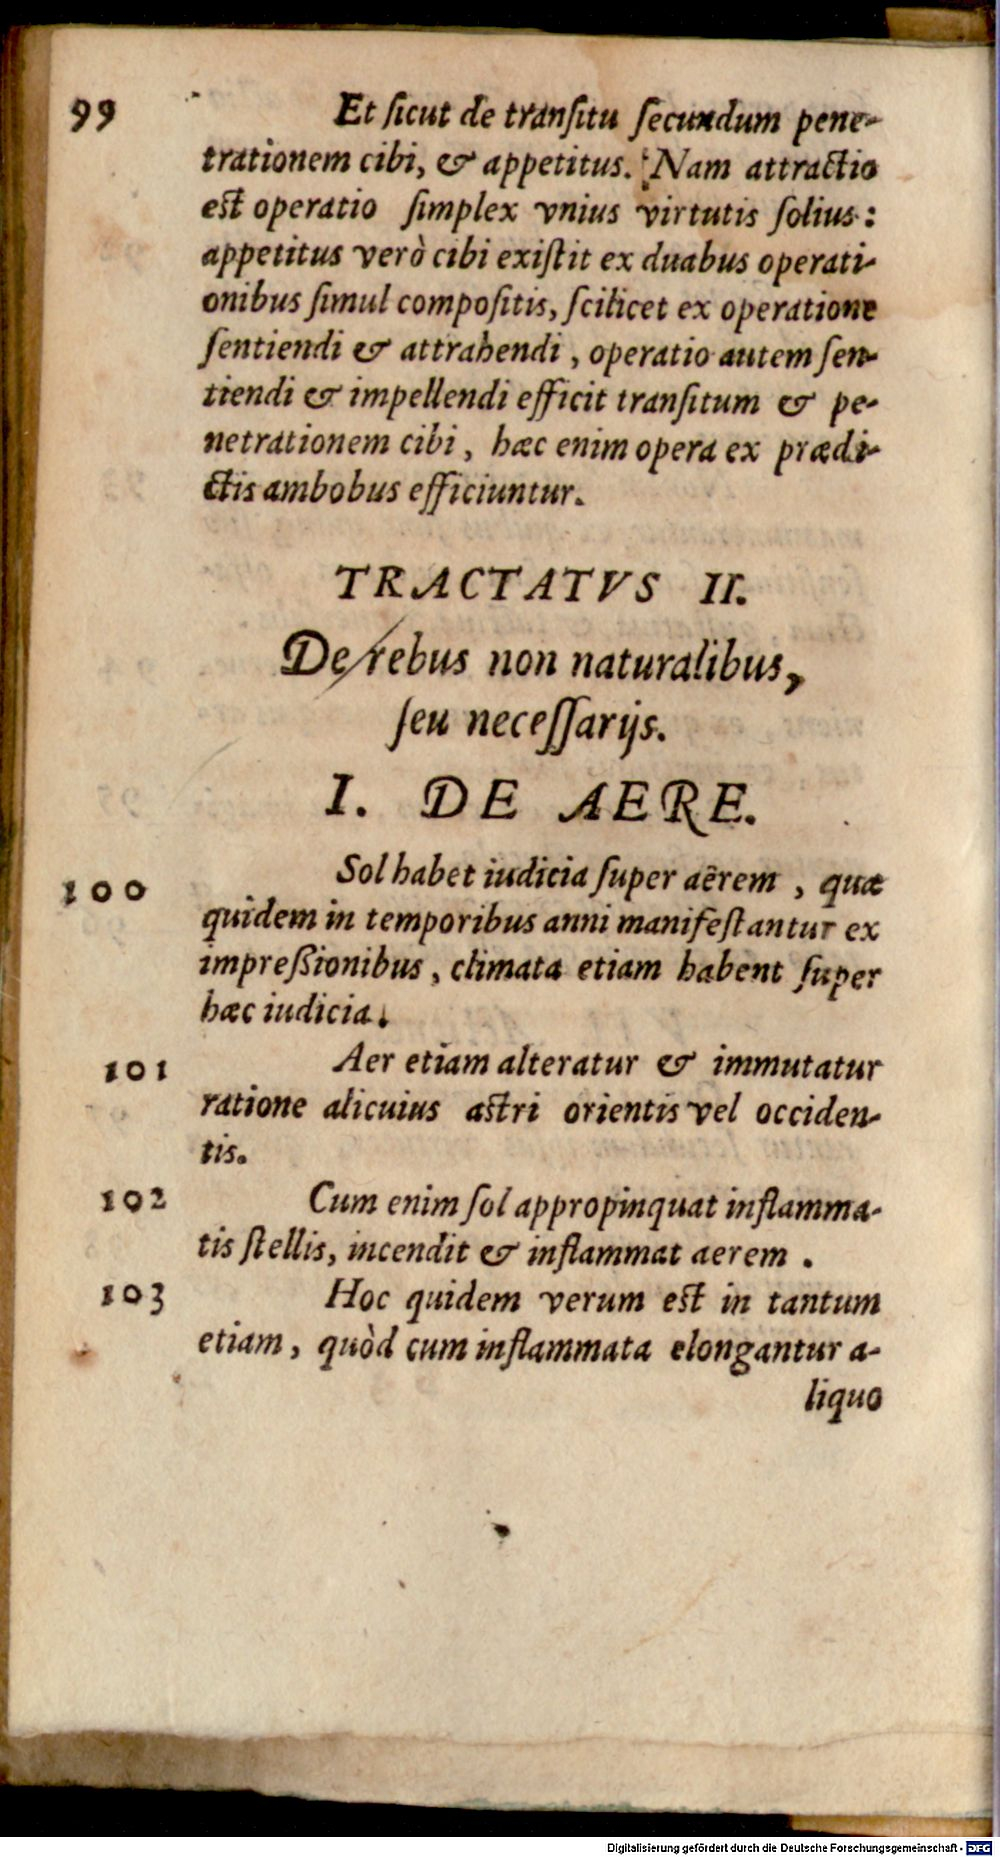 99 Et ſicut de tranſitu ſecundum pene-
trationem cibi, & appetitus. Nam attractio
est operatio ſimplex vnius virtutis ſolius:
appetitus verò cibi exiſtit ex duabus operati-
onibus ſimul compoſitis, ſcilicet ex operatione
ſentiendi & attrahendi, operatio autem ſen-
tiendi & impellendi efficit tranſitum & pe-
netrationem cibi, hæc enim opera ex prædi-
ctis ambobus efficiuntur.
TRACTATVS II.
De rebus non naturalibus,
ſeu neceſſarijs.
I. DE AERE.
100 Sol habet iudicia ſuper aërem, quæ
quidem in temporibus anni manifeſtantur ex
impreßionibus, climata etiam habent ſuper
hæc iudicia.
101 Aer etiam alteratur & immutatur
ratione alicuius astri orientis vel occiden-
tis.
102 Cum enim ſol appropinquat inflamma-
tis ſtellis, incendit & inflammat aerem.
103 Hoc quidem verum est in tantum
etiam, quòd cum inflammata elongantur a-
liquo
Digitalisierung gefördert durch die Deutsche Forschungsgemeinschaft - DFG